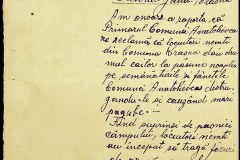 Am onoare a raporta că
Primarul Comunei Anatolkovca
ne reclamă că locuitorii nemți
din Comuna Crasna dau dru
mul cailor la pășune noaptea
pe semănăturile și fânețele
Comunei Anatolkovca distru
gându-le și cauzând mare
pagube.
Fiind surprinși de paznicii
câmpului, locuitorii nemți
au început să tragă focuri